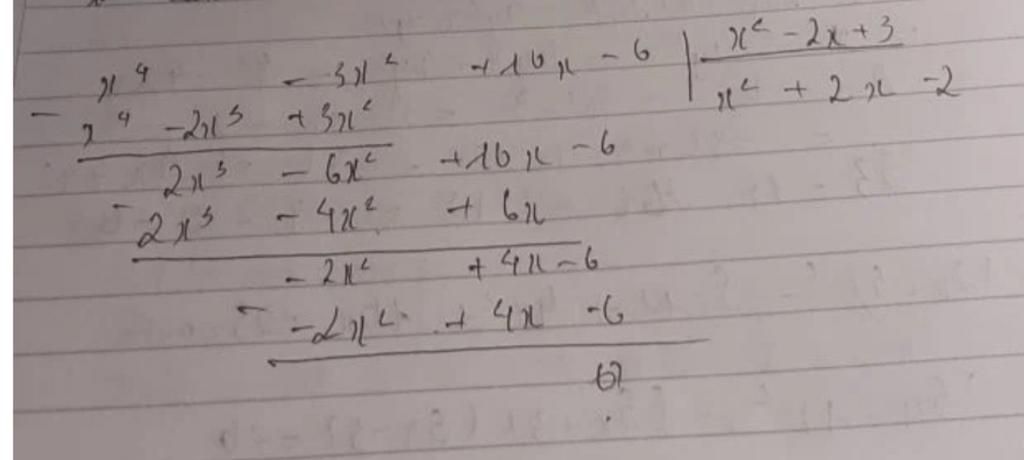 x⁴ - 3x² + 10x - 6 | x² - 2x + 3
- x⁴ - 2x³ + 3x² x² + 2x - 2
2x³ - 6x² + 10x - 6
- 2x³ - 4x² + 6x
- 2x² + 4x - 6
- - 2x² + 4x - 6
0